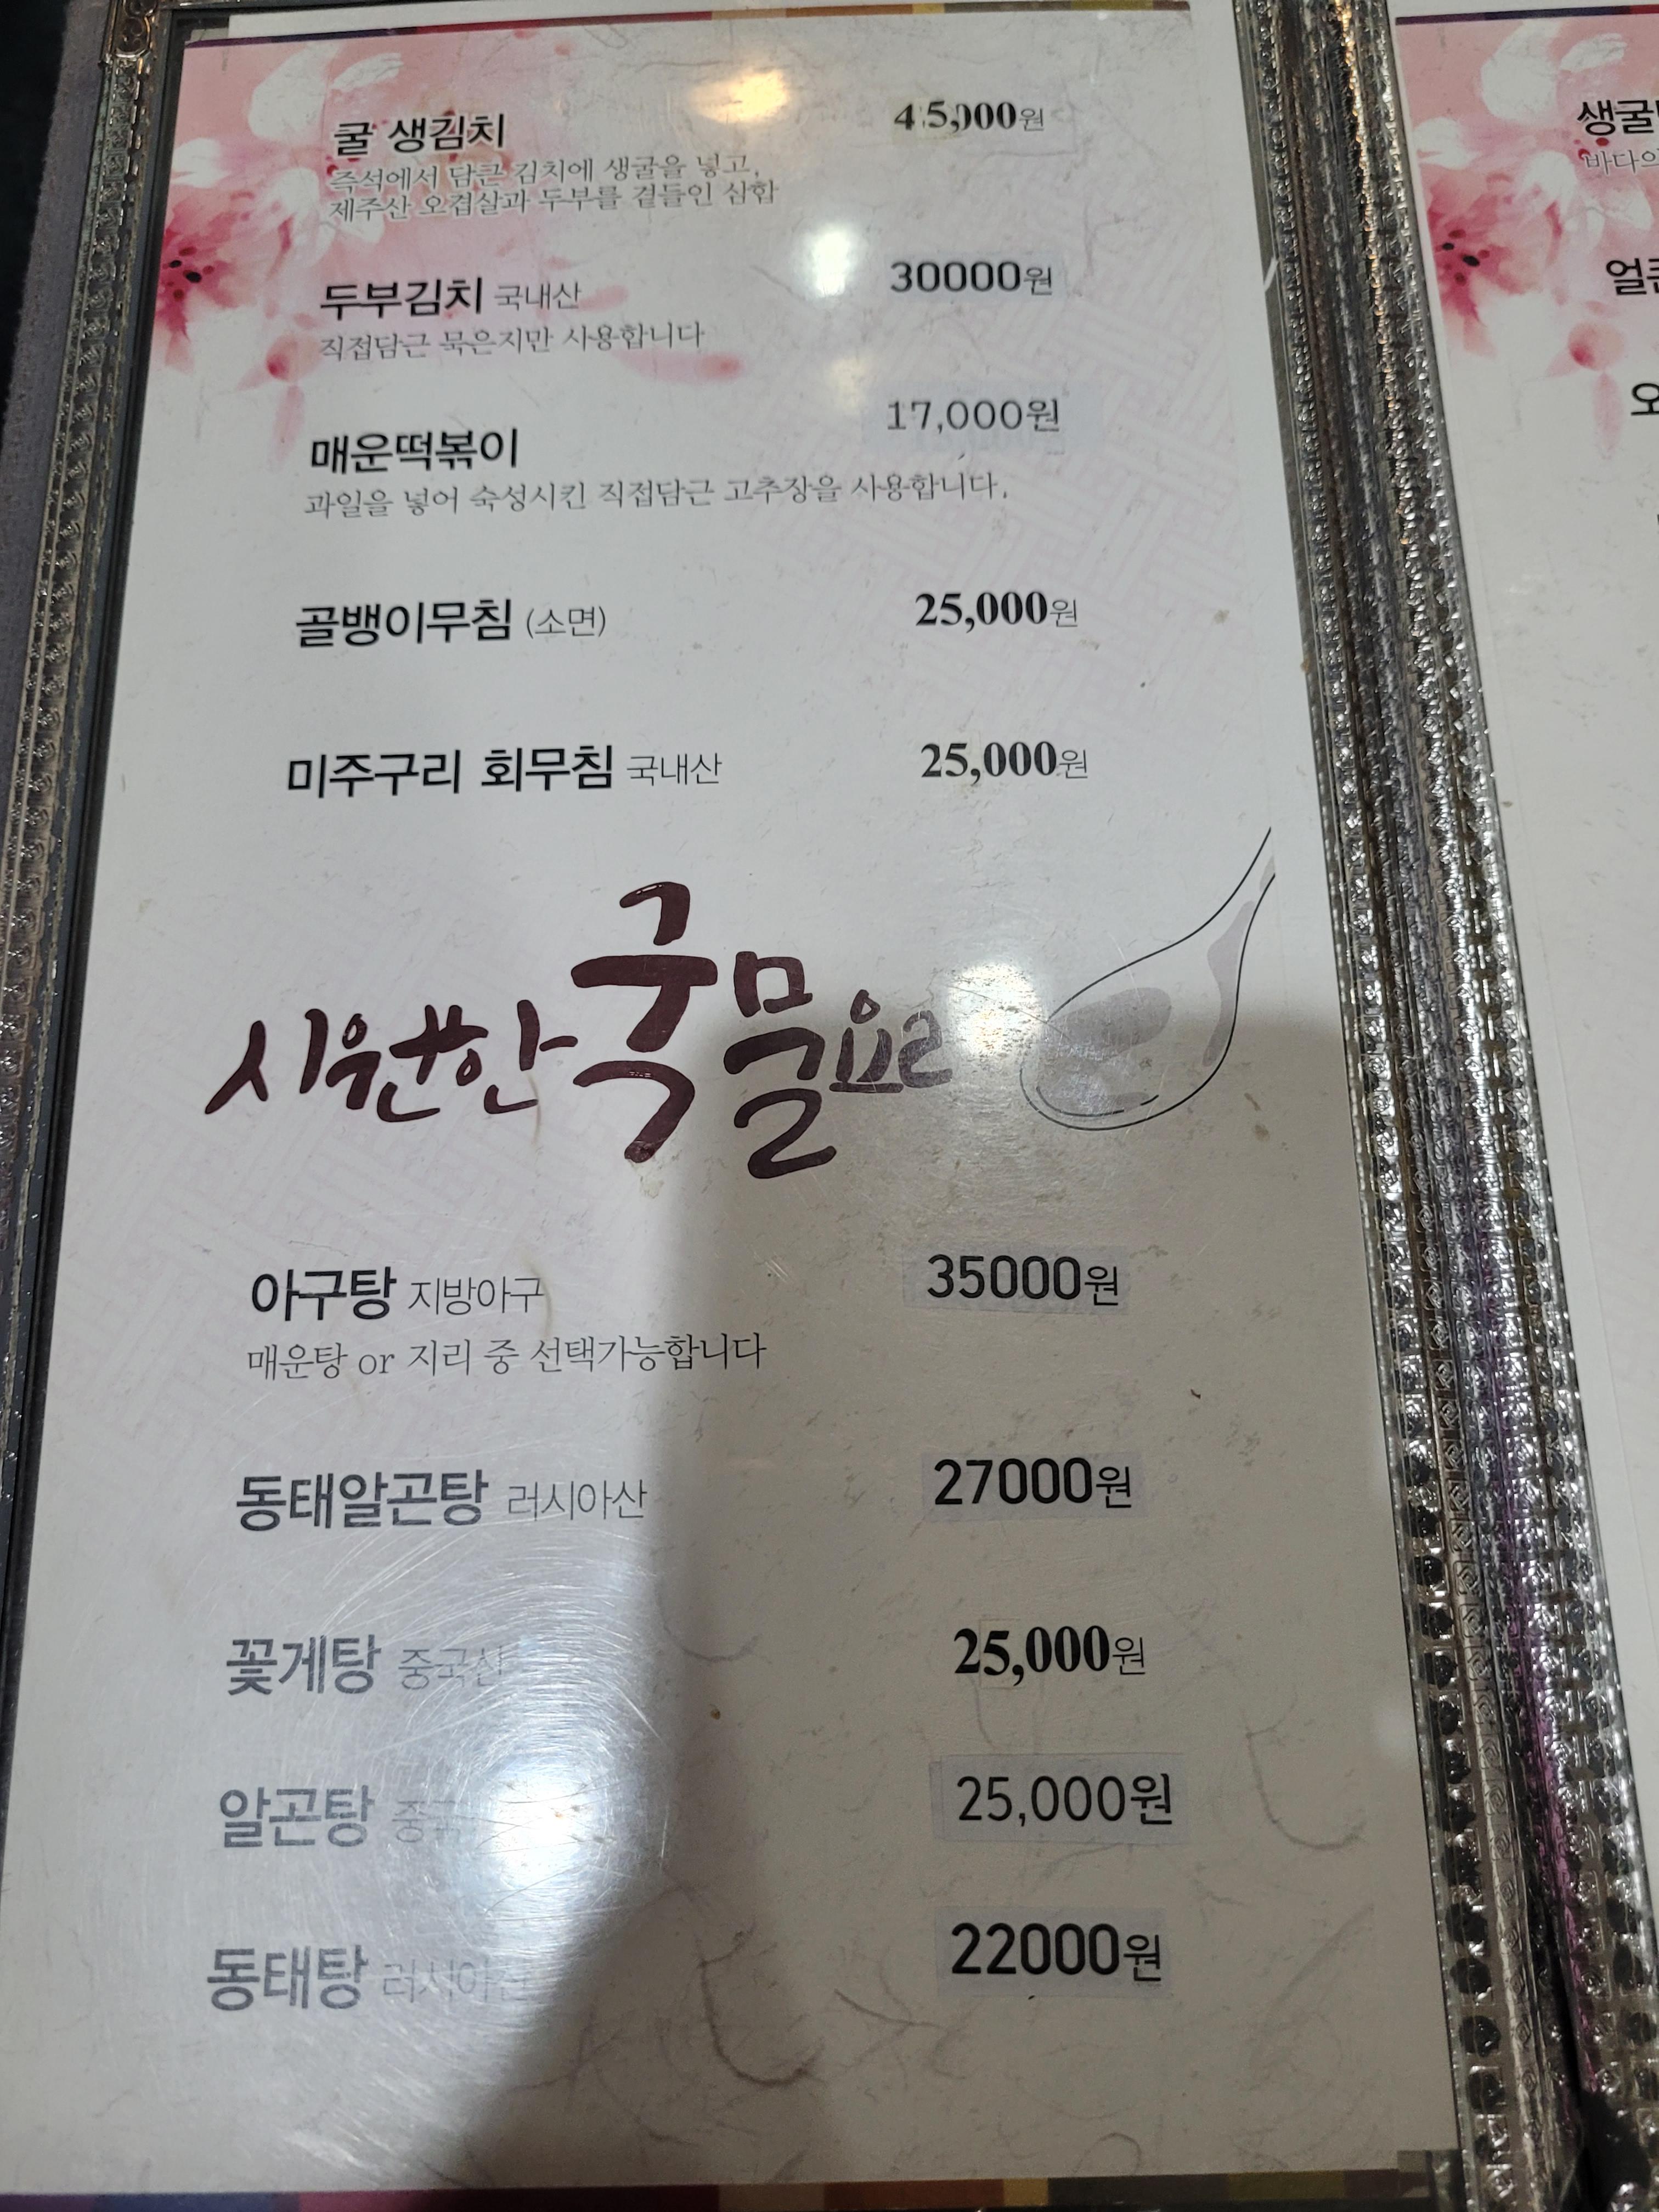 굴 생김치 45,000원
즉석에서 담큰 김치에 생굴을 넣고,
제주산 오겹살과 두부를 곁들인 삼합
두부김치 국내산 30000원
직접담근 묵은지만 사용합니다
매운떡볶이 17,000원
과일을 넣어 숙성시킨 직접담근 고추장을 사용합니다.
골뱅이무침 (소면) 25,000원
미주구리 회무침 국내산 25,000원
시원한국물요리
아구탕 지방아구 35000원
매운탕 or 지리 중 선택가능합니다
동태알곤탕 러시아산 27000원
꽃게탕 중국산 25,000원
알곤탕 25,000원
동태탕 러시아산 22000원
생굴
바다의